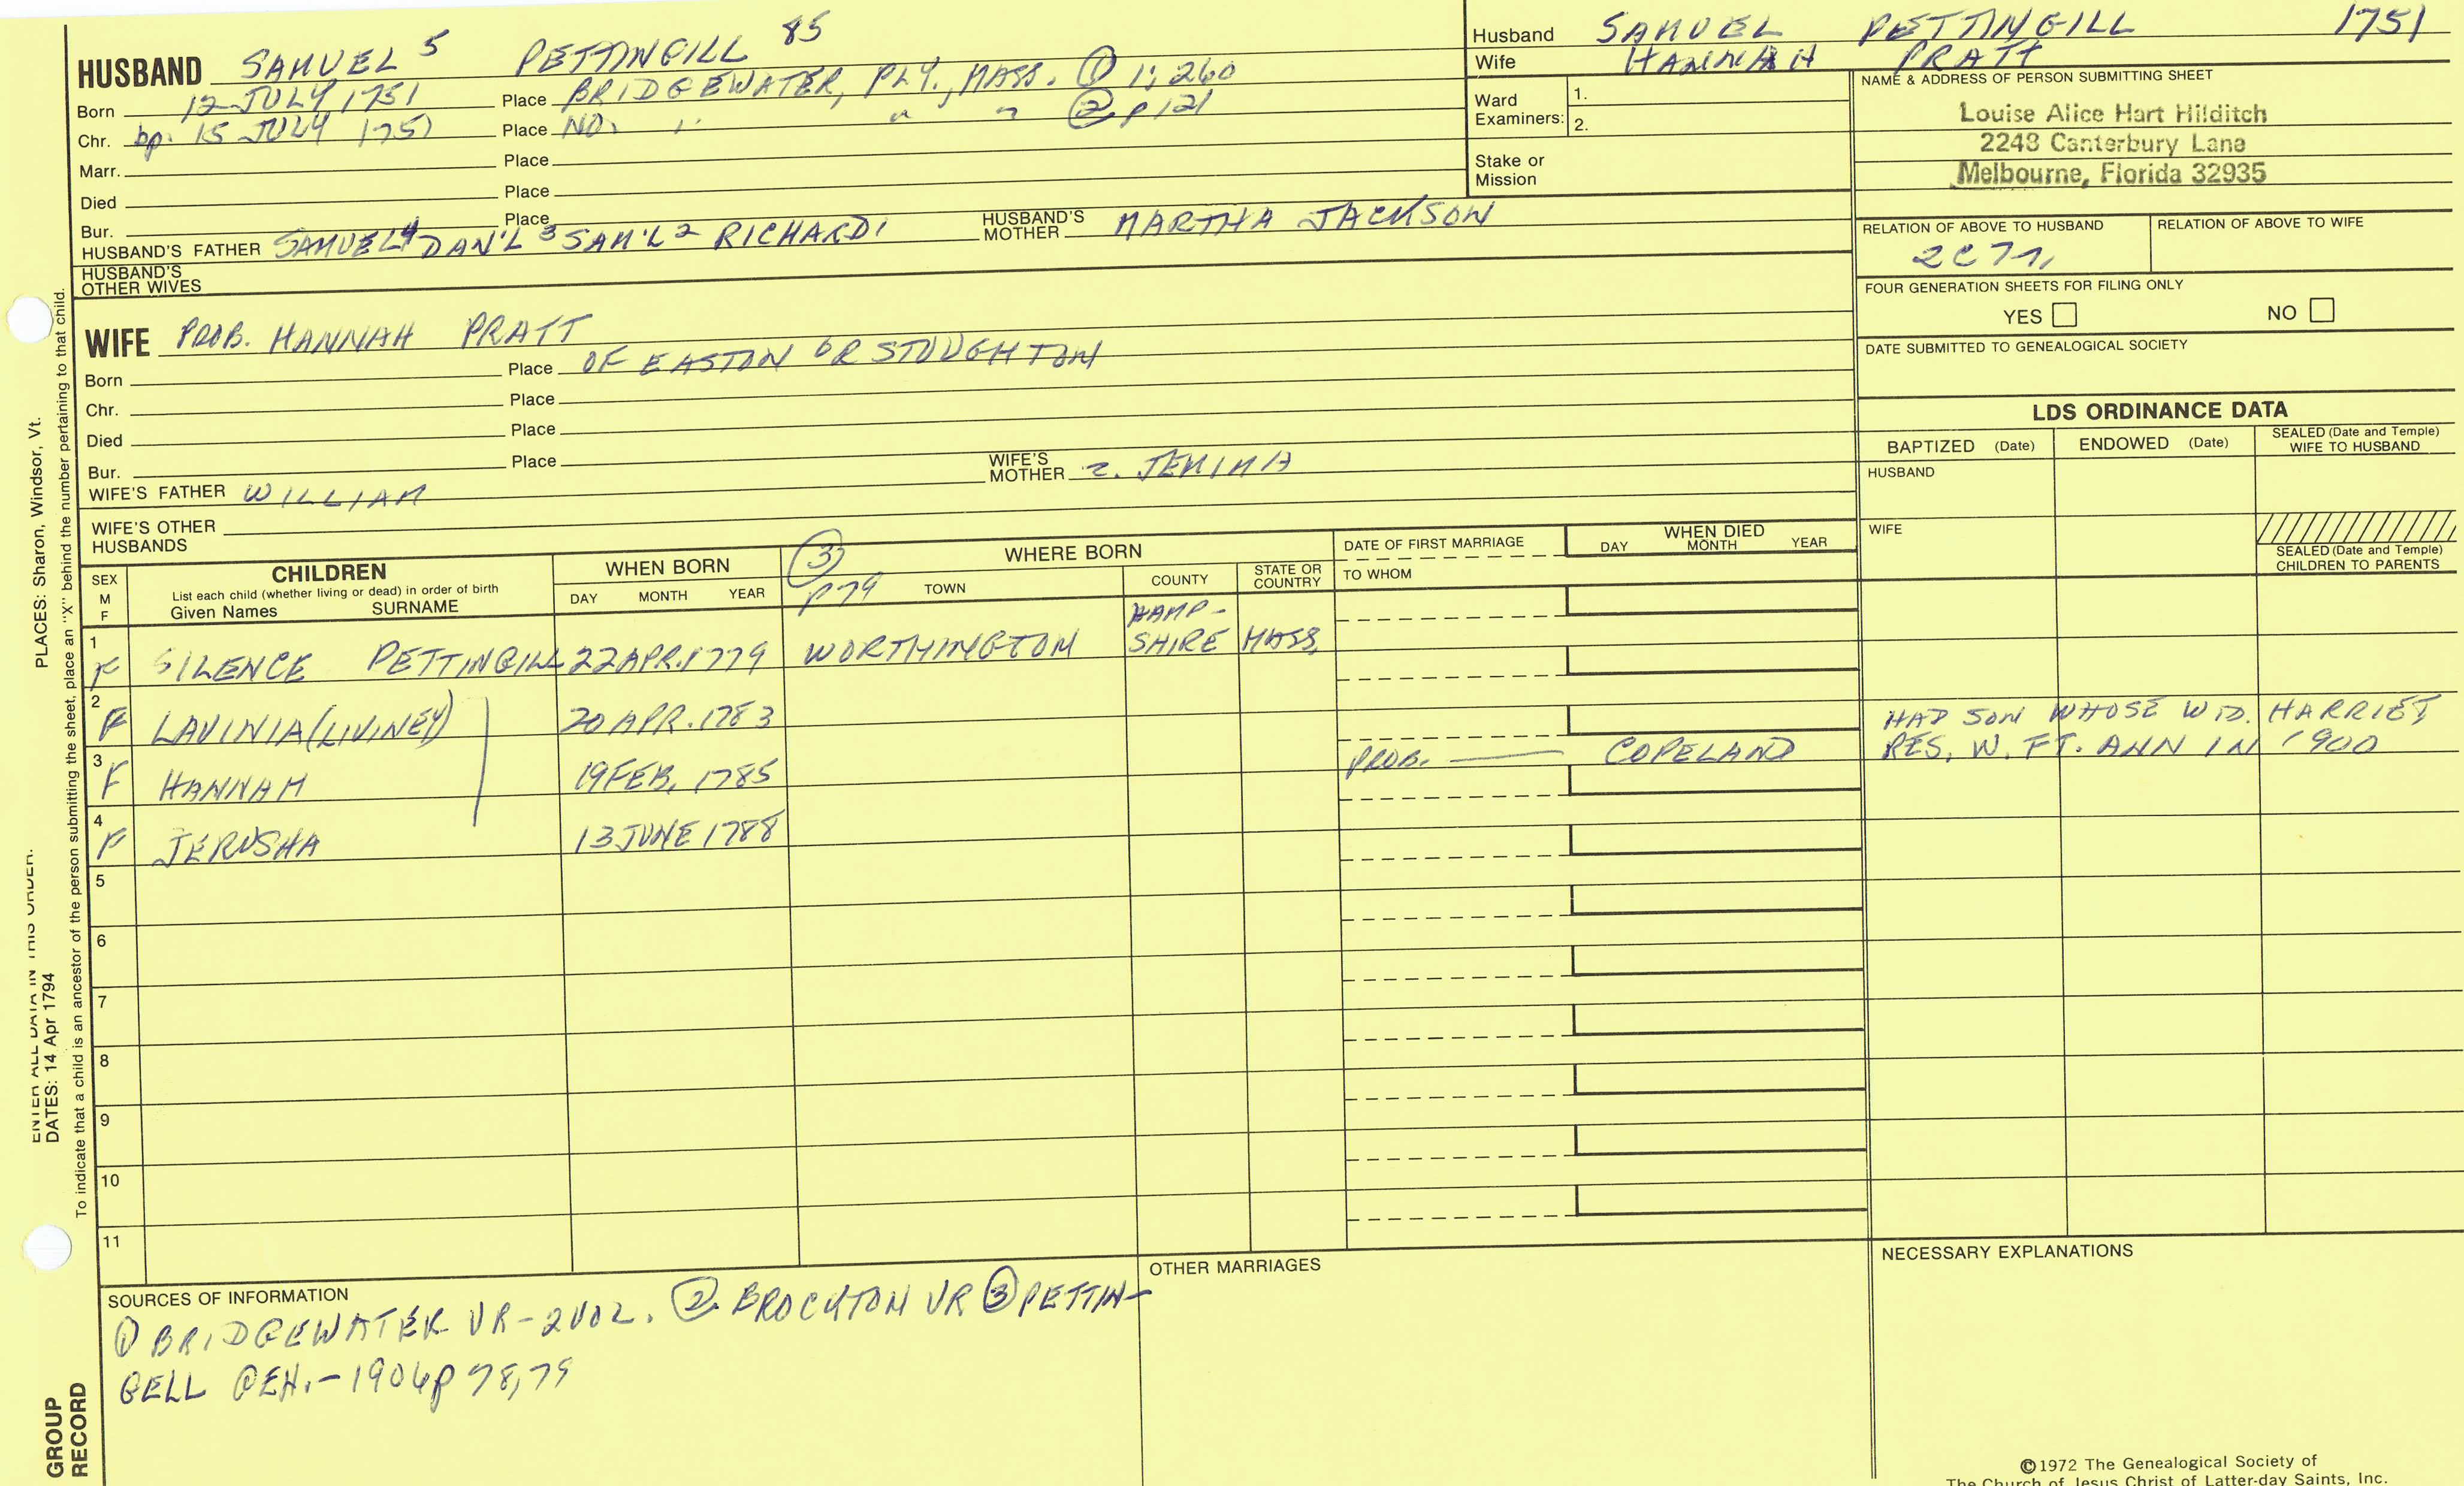 HUSBAND SAMUEL 5 PETTINGILL 85
Born 12 JULY 1751 Place BRIDGEWATER, PLY., MASS. ① 1; 260
Chr. bp. 15 JULY 1751 Place NO. " " " ② p 121
Marr. Place
Died Place
Bur. Place
HUSBAND'S FATHER SAMUEL 4 DAN'L 3 SAM'L 2 RICHARD 1 HUSBAND'S MOTHER MARTHA JACKSON
HUSBAND'S OTHER WIVES
WIFE PROB. HANNAH PRATT
Born Place OF EASTON OR STOUGHTON
Chr. Place
Died Place
Bur. Place
WIFE'S FATHER WILLIAM WIFE'S MOTHER 2. JEMIMA
WIFE'S OTHER HUSBANDS
Husband SAMUEL PETTINGILL 1751
Wife HANNAH PRATT
Ward Examiners: 1.
2.
Stake or Mission
NAME & ADDRESS OF PERSON SUBMITTING SHEET
Louise Alice Hart Hilditch
2248 Canterbury Lane
Melbourne, Florida 32935
RELATION OF ABOVE TO HUSBAND RELATION OF ABOVE TO WIFE
2C7r
FOUR GENERATION SHEETS FOR FILING ONLY
YES NO
DATE SUBMITTED TO GENEALOGICAL SOCIETY
LDS ORDINANCE DATA
BAPTIZED (Date) ENDOWED (Date) SEALED (Date and Temple) WIFE TO HUSBAND
HUSBAND
WIFE
SEALED (Date and Temple) CHILDREN TO PARENTS
SEX M F CHILDREN WHEN BORN ③ p79 WHERE BORN DATE OF FIRST MARRIAGE WHEN DIED
List each child (whether living or dead) in order of birth
Given Names SURNAME DAY MONTH YEAR TOWN COUNTY STATE OR COUNTRY TO WHOM DAY MONTH YEAR
1 F SILENCE PETTINGILL 22 APR. 1779 WORTHINGTON HAMP-SHIRE MASS.
2 F LAVINIA (LIVINEY) 20 APR. 1783 HAD SON WHOSE WID. HARRIET
3 F HANNAH 19 FEB. 1785 PROB. —— COPELAND RES. W. FT. ANN IN 1900
4 F JERUSHA 13 JUNE 1788
5
6
7
8
9
10
11
SOURCES OF INFORMATION
① BRIDGEWATER VR - 2 VOL. ② BROCKTON VR ③ PETTIN-
GELL GEN. - 1906 p 78, 79
OTHER MARRIAGES
NECESSARY EXPLANATIONS
©1972 The Genealogical Society of
The Church of Jesus Christ of Latter-day Saints, Inc.
PLACES: Sharon, Windsor, Vt.
To indicate that a child is an ancestor of the person submitting the sheet, place an "X" behind the number pertaining to that child.
ENTER ALL DATA IN THIS ORDER:
DATES: 14 Apr 1794
GROUP
RECORD